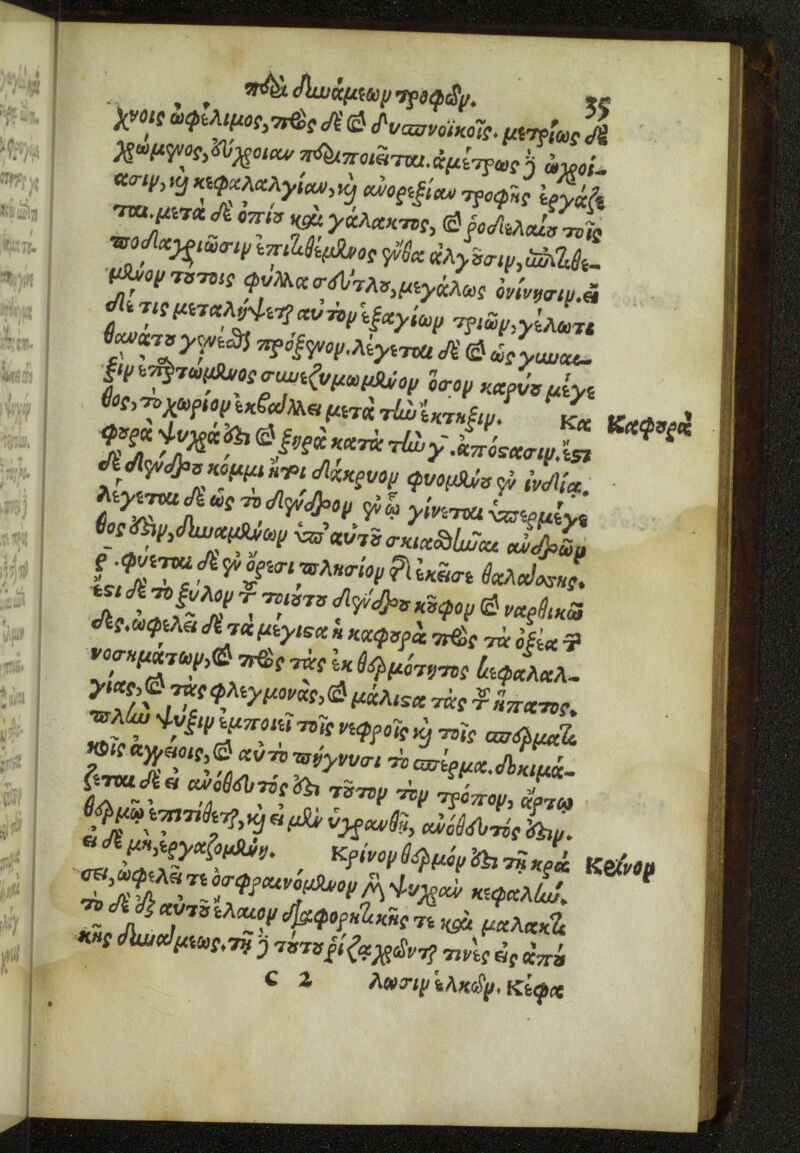 περὶ δυνάμεων τροφῶν. 35
χνοις ὠφέλιμος, πρὸς δὲ καὶ δυσπνοϊκοῖς. μετρίως δὲ
χρώμενος, εὔχροιαν περιποιεῖται. ἀμέτρως δὲ ὠχροί-
ασιν, καὶ κεφαλαλγίαν, καὶ ἀνορεξίαν τροφῆς ἐργάζε
ται. μετὰ δὲ ὀπίου καὶ γάλακτος, καὶ ῥοδελαίου τοῖς
ποδαγριῶσιν ἐπιτιθέμενος ἔνθα ἀλγοῦσιν, ἐπιτιθε-
μένον τούτοις φύλλα σεύτλου, μεγάλως ὀνίνησιν. εἰ
δέ τις μεταλήψεται αὐτοῦ ἑξαγίων τριῶν, γέλωτι
θανάτου γενέσθαι πρόξενον. λέγεται δὲ καὶ ὡς γυναι-
ξὶν συνεζυμωμένον ὅσον καρύου μέγε
θος, τὸ χωρίον ἐκβάλλει μετὰ τὴν ἔκτηξιν. Κα
Καφουρά
φουρα ψυχρά ἐστι καὶ ξηρὰ κατὰ τὴν γ. ἀπόστασιν. ἔστι
δὲ δένδρου κόμμι ἤτοι δάκρυον φυομένου ἐν ἰνδίᾳ.
λέγεται δὲ ὡς τὸ δένδρον ἐν ᾧ γίνεται ὑπερμέγε
θος ἐστὶν, δυναμένων ὑπ' αὐτοῦ σκιασθῆναι ἀνδρῶν
ρ. φύεται δὲ ἐν ὄρεσι πλησίον τῆς ἐκεῖσε θαλάσσης.
ἔστι δὲ τὸ ξύλον τοῦ τοιούτου δένδρου κοῦφον καὶ ναρθικῶ
δες. ὠφελεῖ δὲ τὰ μέγιστα ἡ καφουρὰ πρὸς τὰ ὀξέα τῶν
νοσημάτων, καὶ πρὸς τὰς ἐκ θερμότητος κεφαλαλ-
γίας, καὶ τὰς φλεγμονὰς, καὶ μάλιστα τὰς τοῦ ἥπατος.
πλὴν ψύξιν ἐμποιεῖ τοῖς νεφροῖς καὶ τοῖς σπερματι
κοῖς ἀγγείοις, καὶ αὐτὸ πήγνυσι τὸ σπέρμα. δοκιμά-
ζεται δὲ εἰ ἀνόθευτός ἐστι τοῦτον τὸν τρόπον, ἄρτῳ
θερμῷ ἐπιτίθεται, καὶ εἰ μὲν ὑγρανθῇ, ἀνόθευτός ἐστιν.
εἰ δὲ μὴ, ἐργαζομένη. Κρίνον θερμόν ἐστι τῇ κρά
Κρίνον
σει, ὠφελεῖ τε ὀσφραινόμενον τὴν ψυχρὰν κεφαλήν.
τὸ δὲ ἐξ αὐτοῦ ἔλαιον διαφορητικῆς τε καὶ μαλακτι
κῆς δυνάμεως. τῇ δὲ τούτου ῥίζᾳ χρῶνται τινὲς εἰς ἀπου
C 2 λωσιν ἑλκῶν. Κέφα